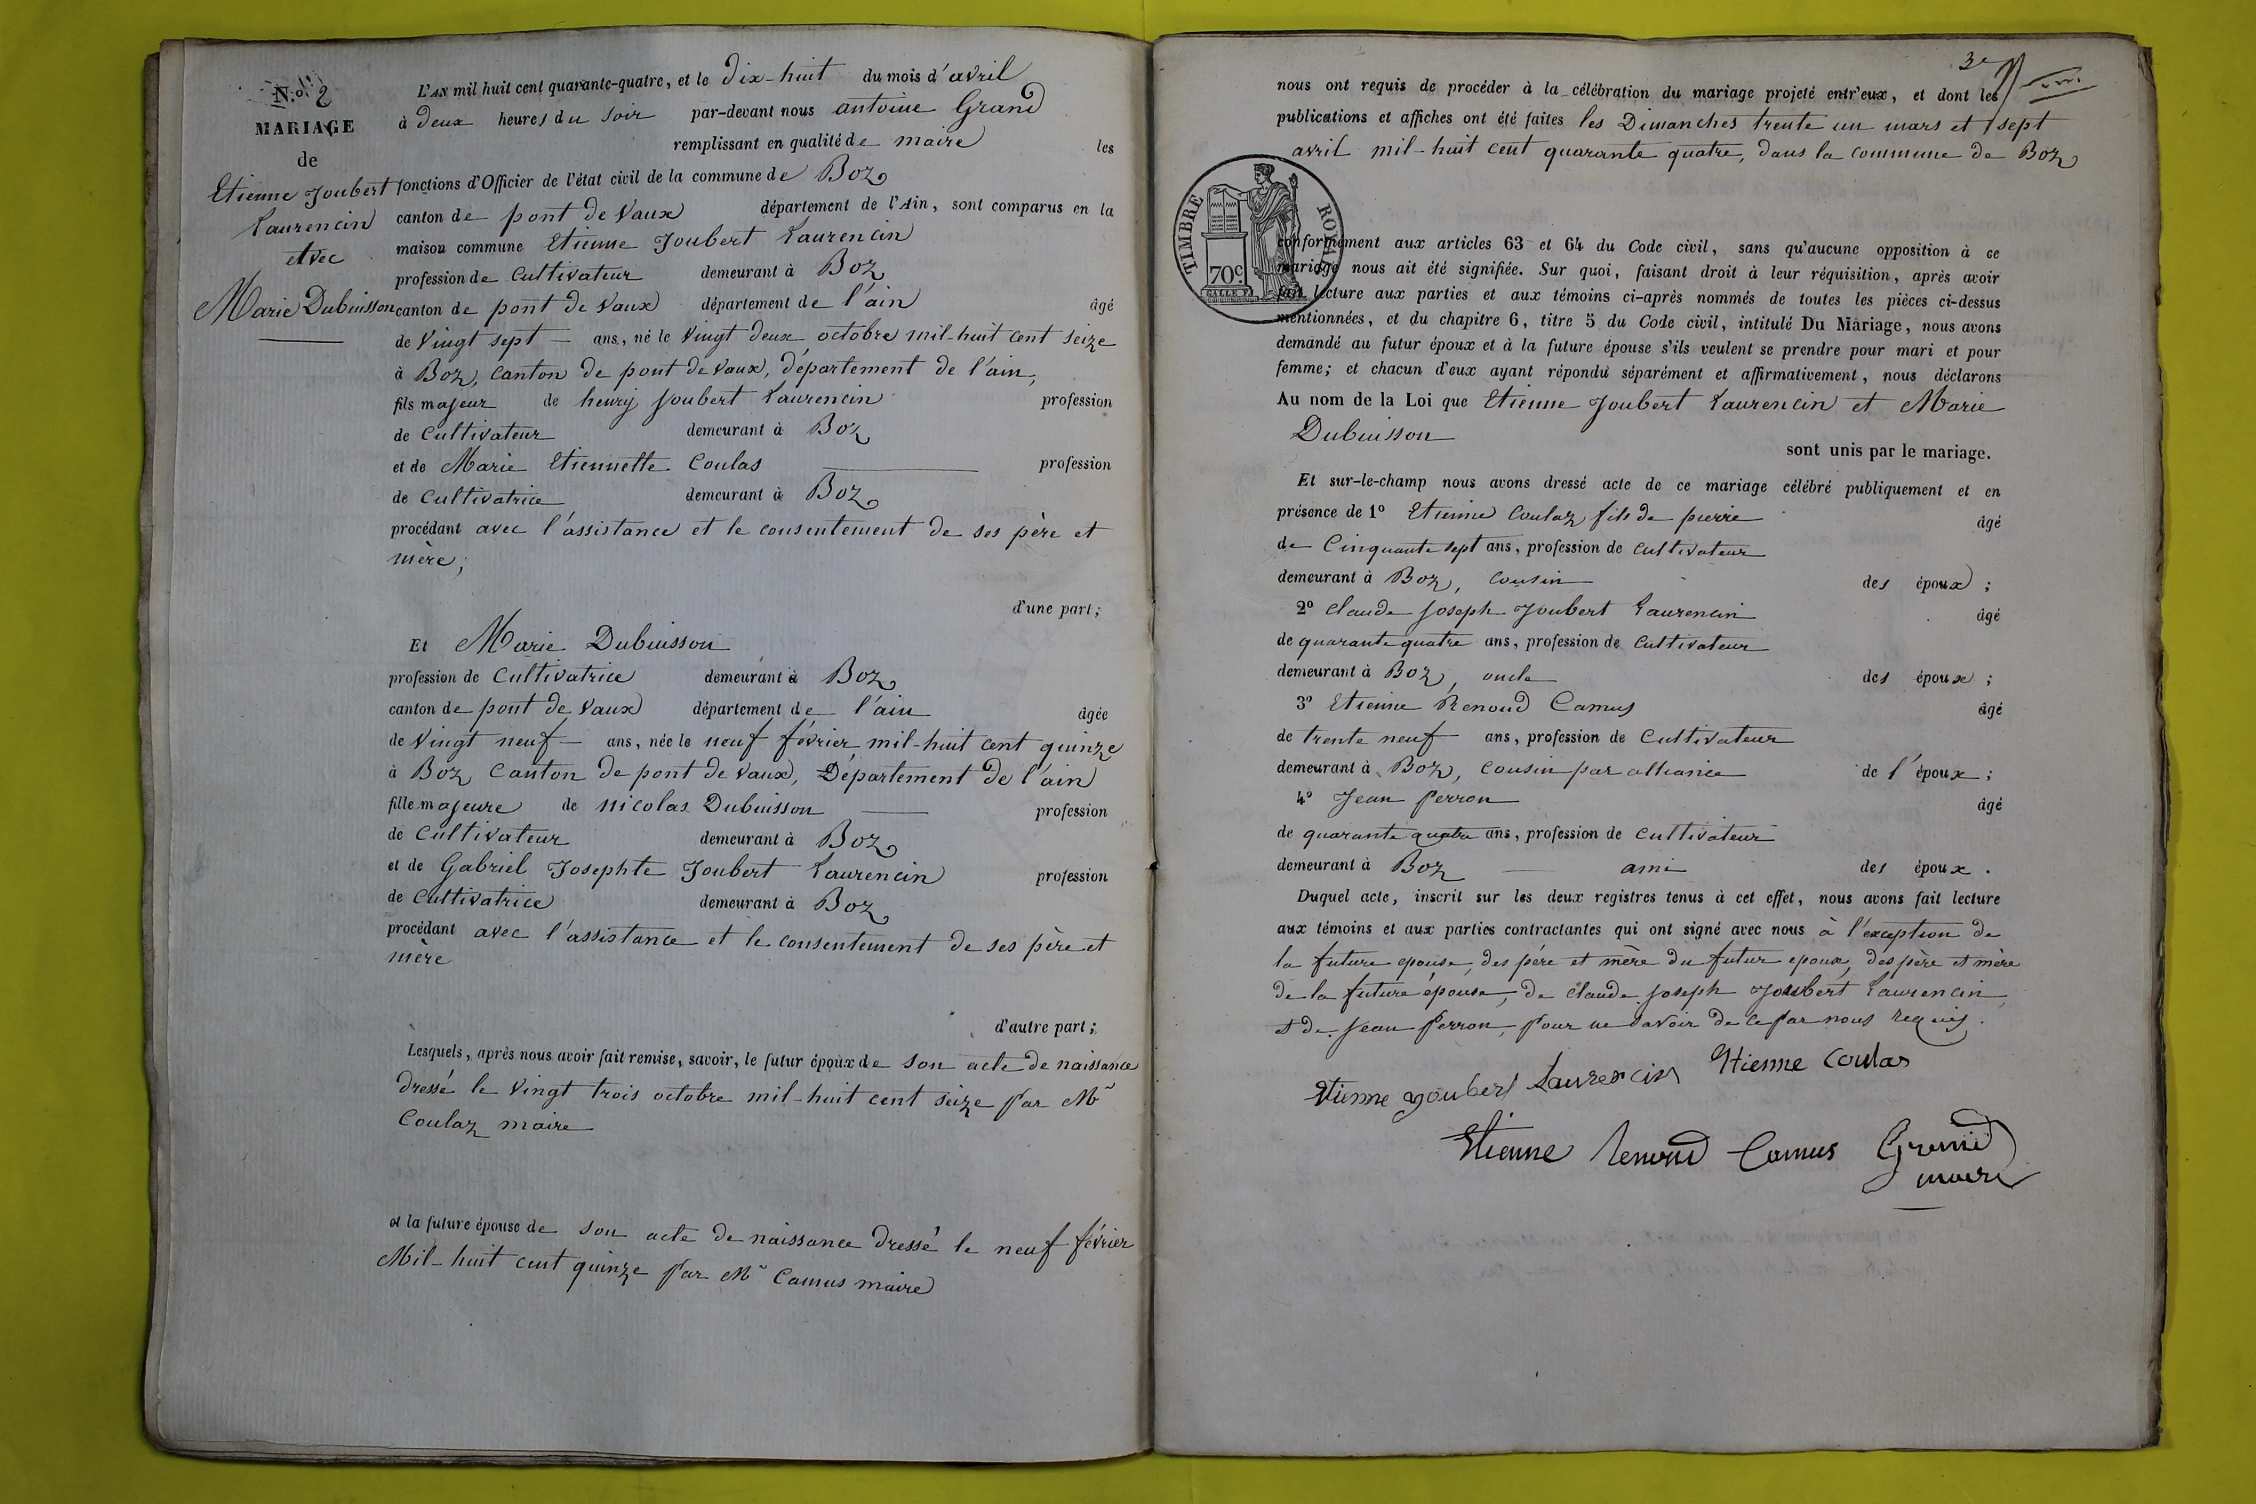 N.o 2
MARIAGE
de
Etienne Joubert
Laurencin
avec
Marie Dubuisson
L'AN mil huit cent quarante-quatre, et le dix-huit du mois d'avril
à deux heures du soir par-devant nous antoine Grand
remplissant en qualité de maire les
fonctions d'Officier de l'état civil de la commune de Boz
canton de pont de Vaux département de l'Ain, sont comparus en la
maison commune Etienne Joubert Laurencin
profession de cultivateur demeurant à Boz
canton de pont de Vaux département de l'ain âgé
de Vingt sept ans, né le Vingt deux octobre mil-huit cent seize
à Boz, canton de pont de Vaux, département de l'ain,
fils majeur de henry Joubert Laurencin profession
de cultivateur demeurant à Boz
et de Marie Etiennette Coulas profession
de cultivatrice demeurant à Boz
procédant avec l'assistance et le consentement de ses père et
mère;
d'une part;
Et Marie Dubuisson
profession de cultivatrice demeurant à Boz
canton de pont de Vaux département de l'ain âgée
de Vingt neuf ans, née le neuf février mil-huit cent quinze
à Boz Canton de pont de Vaux, Département de l'ain
fille majeure de nicolas Dubuisson profession
de cultivateur demeurant à Boz
et de Gabriel Josephte Joubert Laurencin profession
de cultivatrice demeurant à Boz
procédant avec l'assistance et le consentement de ses père et
mère
d'autre part;
Lesquels, après nous avoir fait remise, savoir, le futur époux de son acte de naissance
dressé le Vingt trois octobre mil-huit cent seize par Mr
Coulaz maire
et la future épouse de son acte de naissance dressé le neuf février
Mil-huit cent quinze par Mr Camus maire
3e
nous ont requis de procéder à la célébration du mariage projeté entr'eux, et dont les
publications et affiches ont été faites les Dimanches trente un mars et sept
avril mil-huit cent quarante quatre, dans la commune de Boz
TIMBRE ROYAL
70c.
conformément aux articles 63 et 64 du Code civil, sans qu'aucune opposition à ce
mariage nous ait été signifiée. Sur quoi, faisant droit à leur réquisition, après avoir
fait lecture aux parties et aux témoins ci-après nommés de toutes les pièces ci-dessus
mentionnées, et du chapitre 6, titre 5 du Code civil, intitulé Du Mariage, nous avons
demandé au futur époux et à la future épouse s'ils veulent se prendre pour mari et pour
femme; et chacun d'eux ayant répondu séparément et affirmativement, nous déclarons
Au nom de la Loi que Etienne Joubert Laurencin et Marie
Dubuisson
sont unis par le mariage.
Et sur-le-champ nous avons dressé acte de ce mariage célébré publiquement et en
présence de 1o Etienne Coulaz fils de pierre âgé
de Cinquante sept ans, profession de cultivateur
demeurant à Boz, cousin des époux;
2o claude joseph Joubert Laurencin âgé
de quarante quatre ans, profession de cultivateur
demeurant à Boz, oncle des époux;
3o Etienne Renoud Camus âgé
de trente neuf ans, profession de cultivateur
demeurant à Boz, cousin par alliance de l'époux;
4o Jean Perron âgé
de quarante quatre ans, profession de cultivateur
demeurant à Boz ami des époux.
Duquel acte, inscrit sur les deux registres tenus à cet effet, nous avons fait lecture
aux témoins et aux parties contractantes qui ont signé avec nous à l'exception de
la future epouse, des père et mère du futur epoux, des père et mère
de la future épouse, de claude joseph Joubert Laurencin
et de Jean Perron, pour ne savoir de ce par nous requis.
Etienne Joubert Laurencin Etienne Coulas
Etienne Renoud Camus Grand
maire